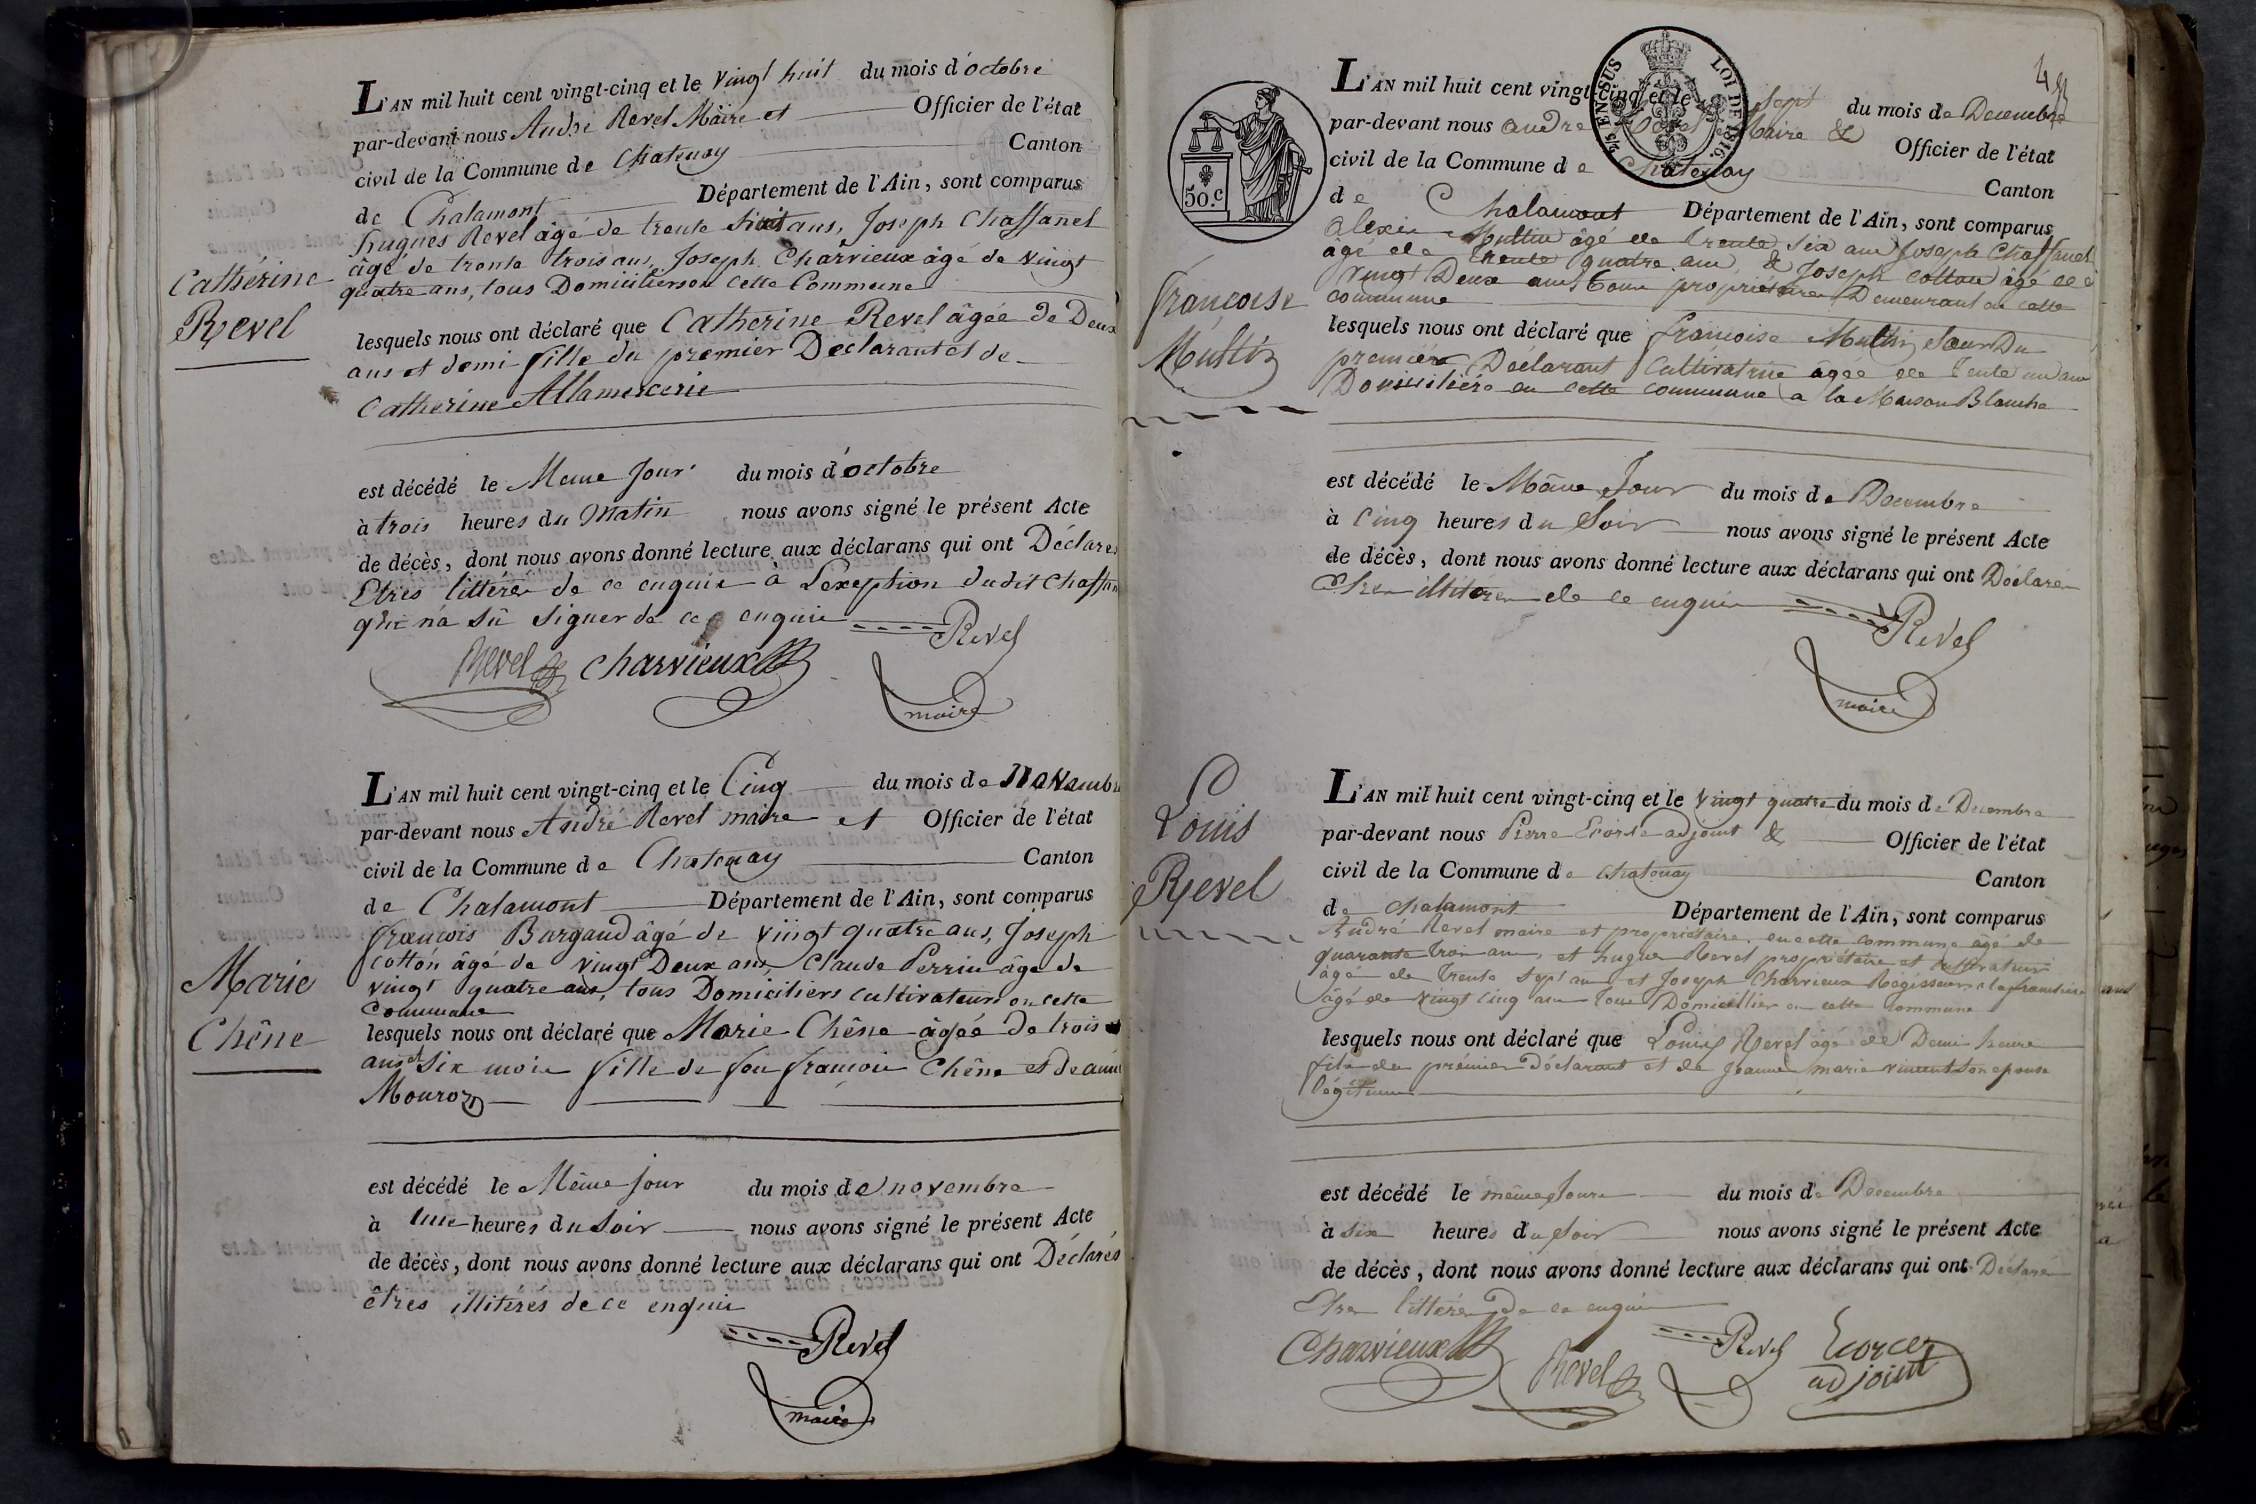 L'AN mil huit cent vingt-cinq et le vingt huit du mois d'octobre
par-devant nous André Revel Maire et Officier de l'état
civil de la Commune de Chatenay Canton
de Chalamont Département de l'Ain, sont comparus
hugues Revel âgé de trente ans, Joseph Chaffanel
âgé de trente trois ans, Joseph Charvieux âgé de vingt
quatre ans, tous Domiciliers en cette Commune
Cathérine
Revel
lesquels nous ont déclaré que Catherine Revel âgée de Deux
ans et demi fille du premier Declarant et de
Catherine Allamercerie
est décédé le Meme Jour du mois d'octobre
à trois heures du Matin nous avons signé le présent Acte
de décès, dont nous avons donné lecture aux déclarans qui ont Déclarés
Etres littérés de ce enquis à L'exeption dudit Chaffan
qui n'a sû signer de ce enquis Revel
Revel Charvieux
maire
L'AN mil huit cent vingt-cinq et le Cinq du mois de Novembre
par-devant nous André Revel maire et Officier de l'état
civil de la Commune de Chatenay Canton
de Chalamont Département de l'Ain, sont comparus
francois Burgaud âgé de viingt quatre ans, Joseph
cotton âgé de vingt Deux ans, Claude Perrin âge de
vingt quatre ans, tous Domiciliers cultivateurs en cette
Commune
Marie
Chêne
lesquels nous ont déclaré que Marie Chêne âgée de trois
ans et six mois fille de feu françois Chêne et de
Mouroz
est décédé le Même jour du mois de novembre
à une heures du Soir nous avons signé le présent Acte
de décès, dont nous avons donné lecture aux déclarans qui ont Déclarés
êtres illiterés de ce enquis
Revel
maire
L'AN mil huit cent vingt-cinq et le Sept du mois de Decembre
par-devant nous andre Revel Maire & Officier de l'état
civil de la Commune de Chatenay Canton
de Chalamont Département de l'Ain, sont comparus
50.c
5/5 EN SUS
LOI DE 1816.
alexis Multin âgé de trente six ans Joseph Chaffanel
âgé de trente quatre ans & Joseph cotton âgé de
vingt Deux ans tous propriétaires Demeurant en cette
commune
françoise
Multin
lesquels nous ont déclaré que francoise Multin Sœur Du
premier Déclarant Cultivatrice âgée de Trente un ans
Domiciliére en cette commune a la Maison Blanche
est décédé le Même Jour du mois de Decembre
à cinq heures du Soir nous avons signé le présent Acte
de décès, dont nous avons donné lecture aux déclarans qui ont Déclaré
Etres illitérés de ce enquis Revel
maire
L'AN mil huit cent vingt-cinq et le vingt quatre du mois de Decembre
par-devant nous Pierre Ecorse adjoint & Officier de l'état
civil de la Commune de chatenay Canton
de chalamont Département de l'Ain, sont comparus
André Revel maire et propriétaire en cette commune âgé de
quarante trois ans, et hugues Revel propriétaire et cultivateur
âgé de trente sept ans et Joseph Charvieux Régisseur
âgé de vingt cinq ans tous Domicillier en cette commune
Louis
Revel
lesquels nous ont déclaré que Louis Revel âgé de Demi heure
fils du prémier Déclarant et de Jeanne marie vincent son epouse
légitime
est décédé le même Jour du mois de Decembre
à six heures du soir nous avons signé le présent Acte
de décès, dont nous avons donné lecture aux déclarans qui ont Déclaré
Etre littérés de ce enquis
Charvieux Revel Revel Ecorce
adjoint